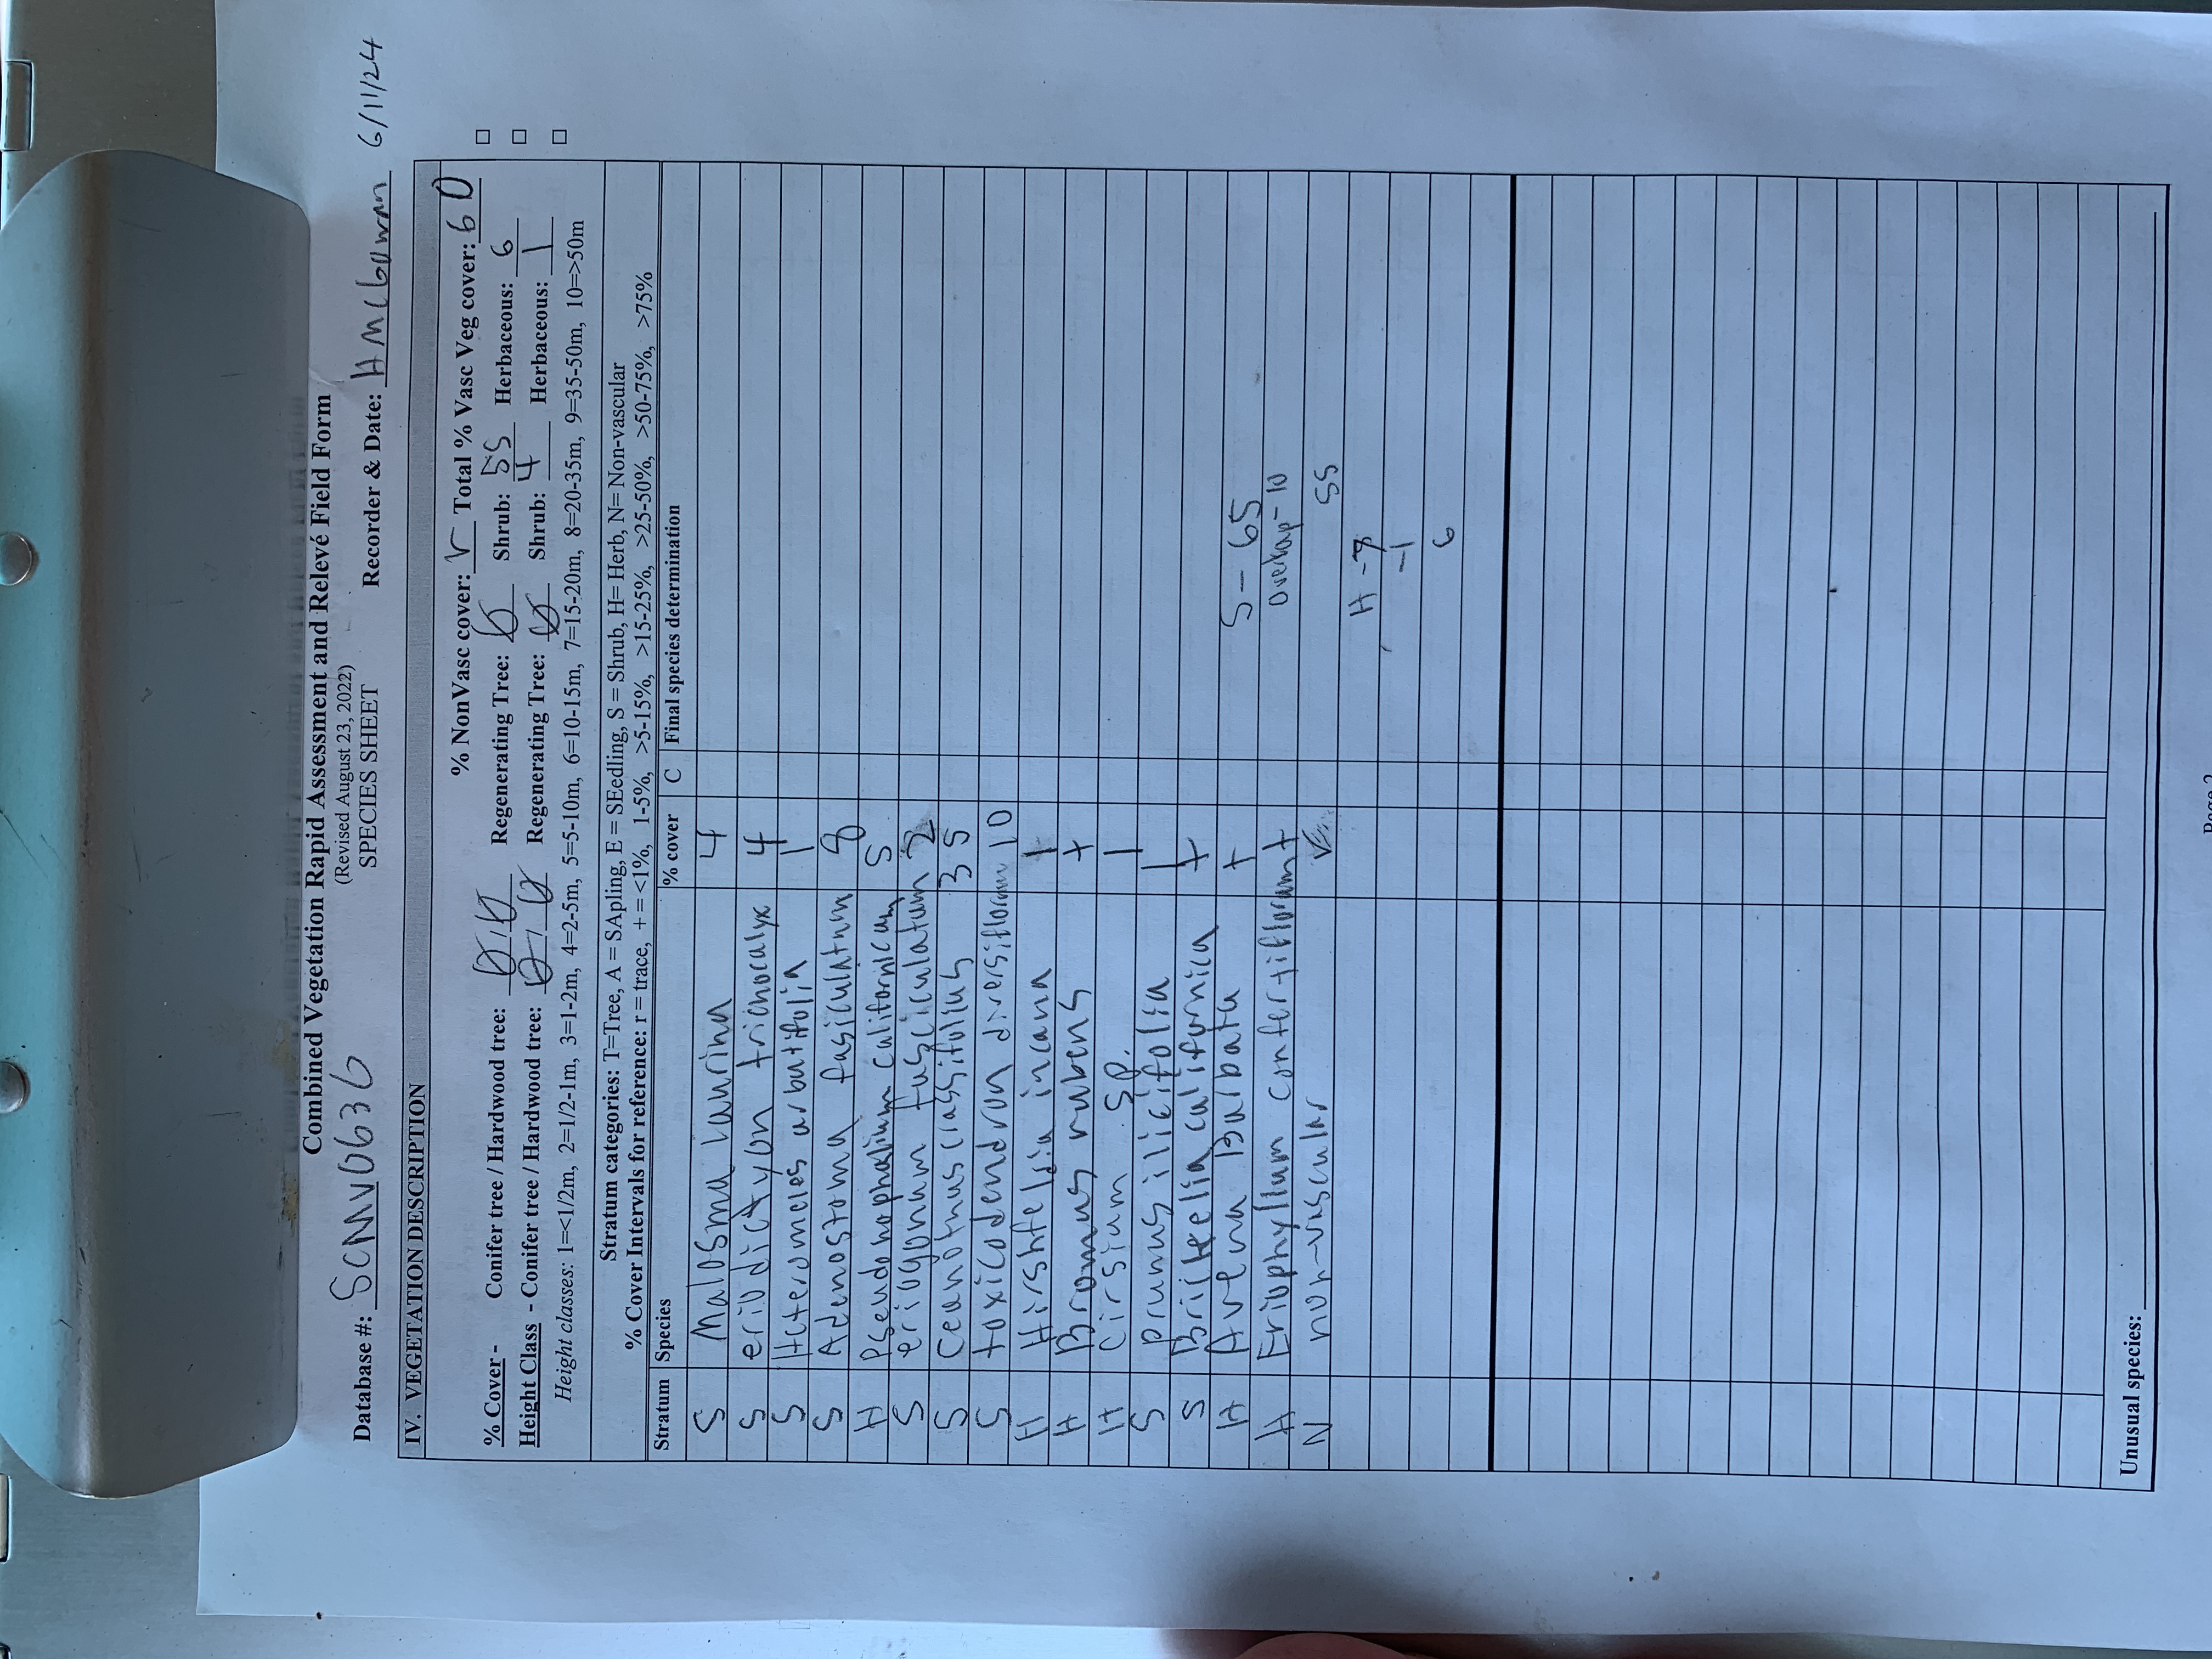 Combined Vegetation Rapid Assessment and Relevé Field Form
(Revised August 23, 2022)
SPECIES SHEET
Database #: SCMV0636 Recorder & Date: H McGowan 6/11/24
IV. VEGETATION DESCRIPTION
% NonVasc cover: r Total % Vasc Veg cover: 60
% Cover - Conifer tree / Hardwood tree: 0/0 Regenerating Tree: 0 Shrub: 55 Herbaceous: 6 □
Height Class - Conifer tree / Hardwood tree: 0/0 Regenerating Tree: 0 Shrub: 4 Herbaceous: 1 □
Height classes: 1=<1/2m, 2=1/2-1m, 3=1-2m, 4=2-5m, 5=5-10m, 6=10-15m, 7=15-20m, 8=20-35m, 9=35-50m, 10=>50m □
Stratum categories: T=Tree, A = SApling, E = SEedling, S = Shrub, H= Herb, N= Non-vascular
% Cover Intervals for reference: r = trace, + = <1%, 1-5%, >5-15%, >15-25%, >25-50%, >50-75%, >75%
Stratum Species % cover C Final species determination
S Malosma laurina 4
S eriodictyon trichocalyx 4
S Heteromeles arbutifolia 1
S Adenostoma fasiculatum 8
H Pseudonophalium californicum 5
S eriogonum fusciculatum 2
S Ceanothus crassifolius 35
S toxicodendron diversiflorum 10
H Hirshfeldia incana 1
H Bromus rubens +
H Cirsium sp. 1
S prunus ilicifolia 1
S Brickelia californica +
H Avena Barbata + S - 65
H Eriophyllum confertiflorum + overlap - 10
N non-vascular r 55
H - 7
-1
6
Unusual species: